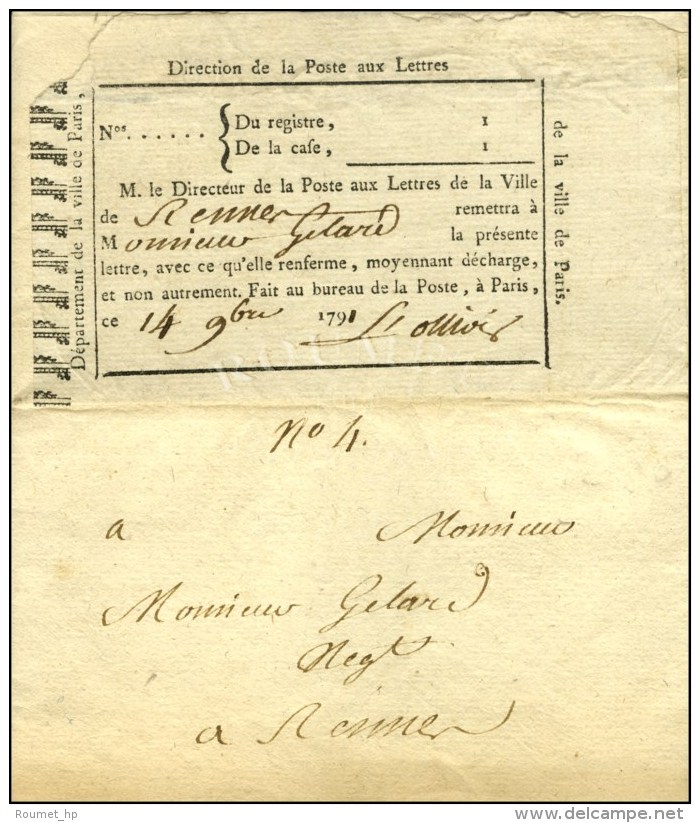 Direction de la Poste aux Lettres
Département de la ville de Paris,
Nos. . . . . . .
Du registre, 1
De la case, 1
M. le Directeur de la Poste aux Lettres de la Ville
de Rennes remettra à
Monsieur Gelard la présente
lettre, avec ce qu'elle renferme, moyennant décharge,
et non autrement. Fait au bureau de la Poste, à Paris,
ce 14 9bre 1791
de la ville de Paris.
No 4.
a Monsieur
Monsieur Gelard
Negt
a Rennes
Roumet_hp
delcampe.net